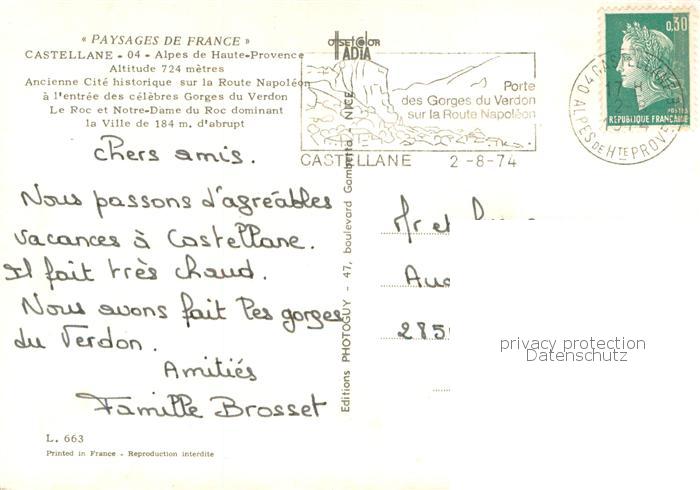 « PAYSAGES DE FRANCE »
CASTELLANE - 04 - Alpes de Haute-Provence
Altitude 724 mètres
Ancienne Cité historique sur la Route Napoléon
à l'entrée des célèbres Gorges du Verdon
Le Roc et Notre-Dame du Roc dominant
la Ville de 184 m. d'abrupt
Chers amis.
Nous passons d'agréables
vacances à Castellane.
Il fait très chaud.
Nous avons fait les gorges
du Verdon.
Amitiés
Famille Brosset
L. 663
Printed in France - Reproduction interdite
Editions PHOTOGUY - 47, boulevard Gambetta NICE
offset color
IADIA
Porte
des Gorges du Verdon
sur la Route Napoléon
CASTELLANE 2-8-74
0,30
REPUBLIQUE FRANÇAISE
POSTES
04 CASTELLANE
ALPES DE HTE PROVENCE
Mr et
285
privacy protection
Datenschutz